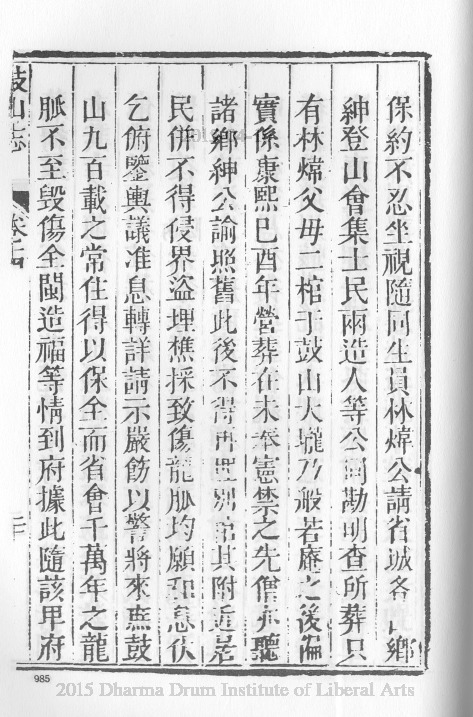 保約不忍坐視隨同生員林煒公請省城各鄉
紳登山會集士民兩造人等公同勘明查所葬只
有林煒父母二棺于鼓山大壠乃般若庵之後偏
實係康熙己酉年營葬在未奉憲禁之先僧亦聽
諸鄉紳公諭照舊此後不得再埋別棺其附近居
民併不得侵界盜埋樵採致傷龍脈均願和息伏
乞俯鑒輿議准息轉詳請示嚴飭以警將來庶鼓
山九百載之常住得以保全而省會千萬年之龍
脈不至毀傷全閩造福等情到府據此隨該甲府
鼓山志
985
2015 Dharma Drum Institute of Liberal Arts